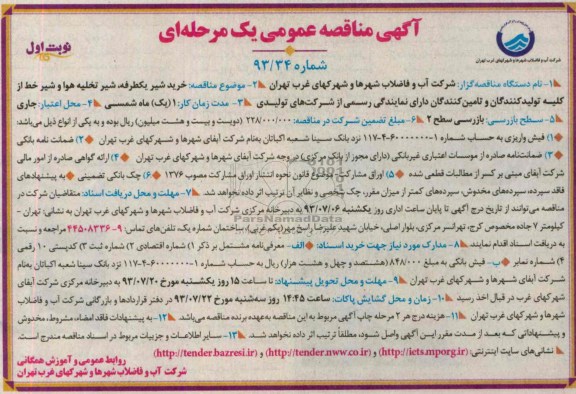 آگهی مناقصه عمومی یک مرحله‌ای
نوبت اول
شماره ۹۳/۳۴
شرکت آب و فاضلاب شهرها و شهرکهای غرب تهران
۱- نام دستگاه مناقصه‌گزار: شرکت آب و فاضلاب شهرها و شهرکهای غرب تهران ۲- موضوع مناقصه: خرید شیر یکطرفه، شیر تخلیه هوا و شیر خط از
کلیه تولیدکنندگان و تامین‌کنندگان دارای نمایندگی رسمی از شرکت‌های تولیدی ۳- مدت زمان کار: ۱ (یک) ماه شمسی ۴- محل اعتبار: جاری
۵- سطح بازرسی: بازرسی سطح ۲ ۶- مبلغ تضمین شرکت در مناقصه: ۲۲۸/۰۰۰/۰۰۰ (دویست و بیست و هشت میلیون) ریال بوده و به یکی از انواع ذیل می‌باشد:
۱) فیش واریزی به حساب شماره ۱-۶۰۰۰۰۰۰-۴-۱۱۷ نزد بانک سینا شعبه اکباتان به‌نام شرکت آبفای شهرها و شهرکهای غرب تهران ۲) ضمانت نامه بانکی
۳) ضمانتنامه صادره از موسسات اعتباری غیربانکی (دارای مجوز از بانک مرکزی) در وجه شرکت آبفای شهرها و شهرکهای غرب تهران ۴) ارائه گواهی صادره از امور مالی
شرکت آبفای مبنی بر کسر از مطالبات قطعی شده ۵) اوراق مشارکت موضوع قانون نحوه انتشار اوراق مشارکت مصوب ۱۳۷۶ ۶) چک بانکی تضمینی به پیشنهادهای
فاقد سپرده، سپرده‌های مخدوش، سپرده‌های کمتر از میزان مقرر، چک شخصی و نظایر آن ترتیب اثر داده نخواهد شد. ۷- مهلت و محل دریافت اسناد: متقاضیان شرکت در
مناقصه می‌توانند از تاریخ درج آگهی تا پایان ساعت اداری روز یکشنبه ۹۳/۰۷/۰۶ به دبیرخانه مرکزی شرکت آب و فاضلاب شهرها و شهرکهای غرب تهران به نشانی: تهران -
کیلومتر ۷ جاده مخصوص کرج، تهرانسر مرکزی، بلوار اصلی، خیابان شهید علیرضا راسخ مهر (یکم غربی)، ساختمان شماره یک، تلفن‌های تماس: ۹-۴۴۵۰۸۳۳۶ مراجعه و نسبت
به دریافت اسناد اقدام نمایند. ۸- مدارک مورد نیاز جهت خرید اسناد: الف- معرفی‌نامه مشتمل بر ذکر ۱) شماره اقتصادی ۲) شماره ثبت ۳) کدپستی ۱۰ رقمی
۴) شماره نمابر ب- فیش بانکی به مبلغ ۸۴۸/۰۰۰ (هشتصد و چهل و هشت هزار) ریال به حساب شماره ۱-۶۰۰۰۰۰۰-۴-۱۱۷ نزد بانک سینا شعبه اکباتان به‌نام
شرکت آبفای شهرها و شهرکهای غرب تهران ۹- مهلت و محل تحویل پیشنهاد: تا ساعت ۱۵ روز یکشنبه مورخ ۹۳/۰۷/۲۰ به دبیرخانه مرکزی شرکت آبفای شهرها و
شهرکهای غرب در قبال اخذ رسید ۱۰- زمان و محل گشایش پاکات: ساعت ۱۴:۴۵ روز سه‌شنبه مورخ ۹۳/۰۷/۲۲ در دفتر قراردادها و بازرگانی شرکت آب و فاضلاب
شهرها و شهرکهای غرب تهران ۱۱- هزینه درج هر ۲ مرحله چاپ آگهی مربوط به این مناقصه به‌عهده برنده مناقصه می‌باشد ۱۲- به پیشنهادات فاقد امضاء، مشروط، مخدوش
و پیشنهاداتی که بعد از مدت مقرر این آگهی واصل شود، مطلقاً ترتیب اثر داده نخواهد شد. ۱۳- سایر اطلاعات و جزییات مربوط در اسناد مناقصه مندرج است.
نشانی‌های سایت اینترنتی: (http://iets.mporg.ir) و (http://tender.nww.co.ir) و (http://tender.bazresi.ir)
روابط عمومی و آموزش همگانی
شرکت آب و فاضلاب شهرها و شهرکهای غرب تهران
ParsNamadData